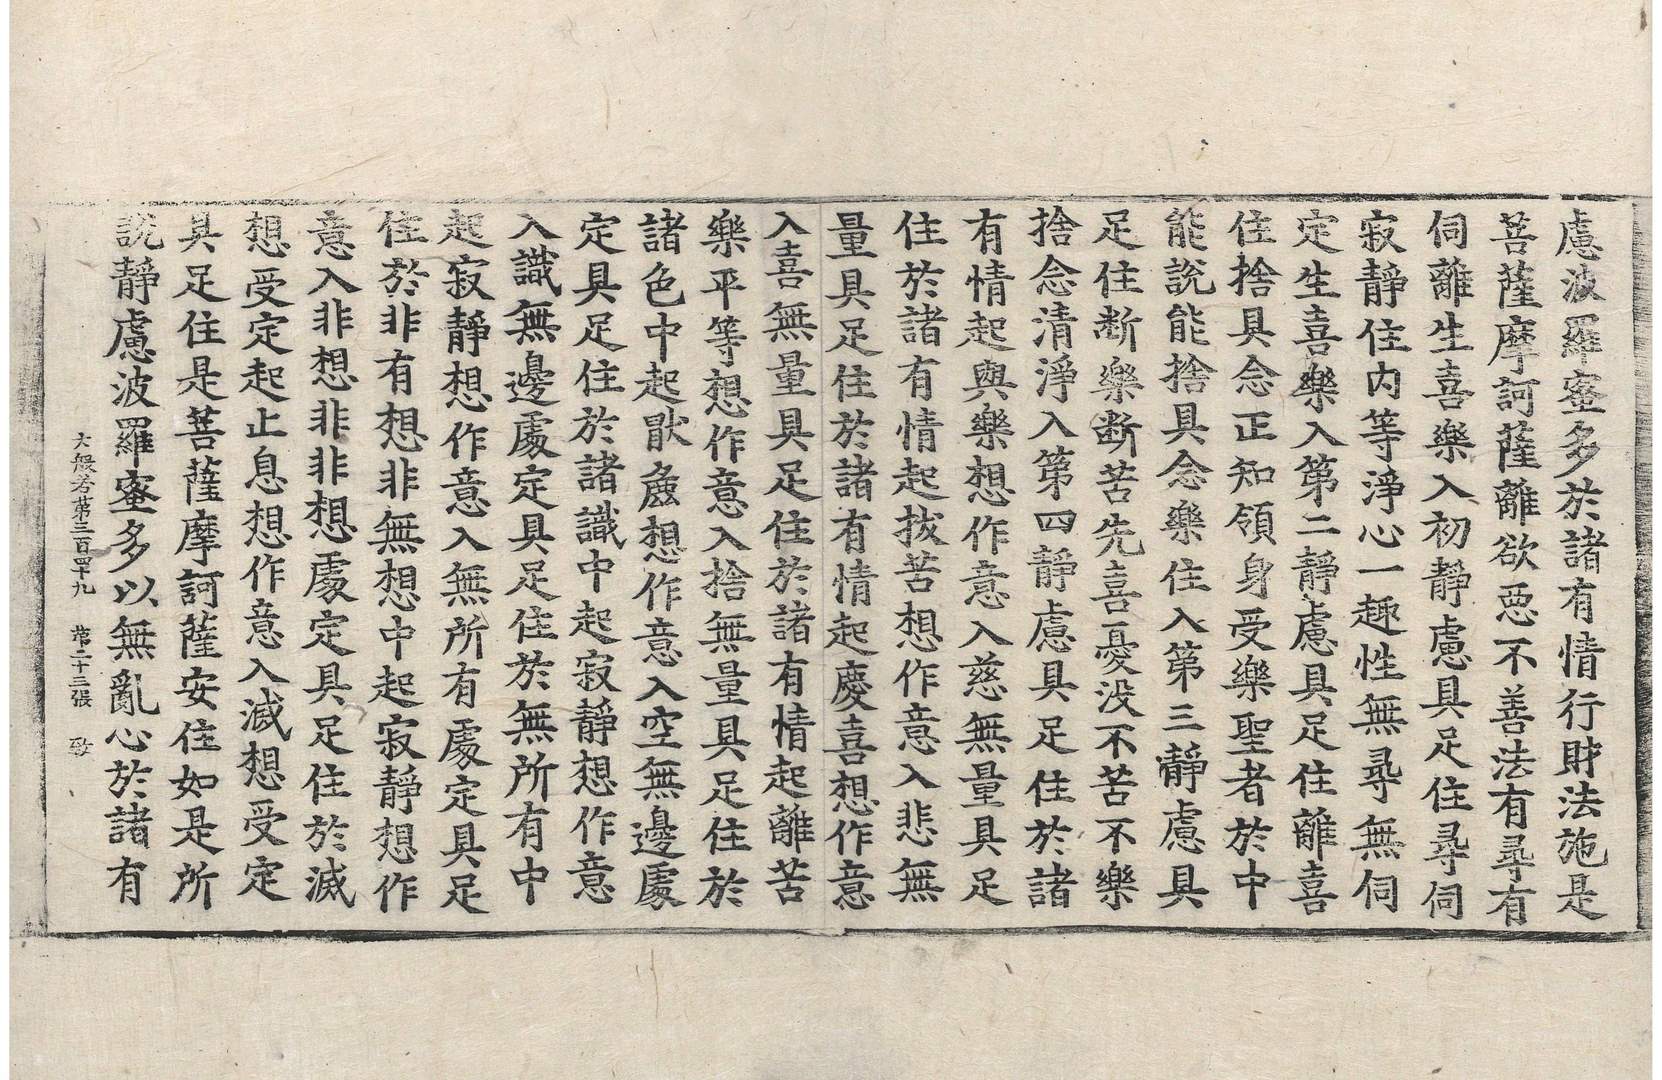 慮波羅蜜多於諸有情行財法施是
菩薩摩訶薩離欲惡不善法有尋有
伺離生喜樂入初靜慮具足住尋伺
寂靜住內等淨心一趣性無尋無伺
定生喜樂入第二靜慮具足住離喜
住捨具念正知領身受樂聖者於中
能說能捨具念樂住入第三靜慮具
足住断樂断苦先喜憂没不苦不樂
捨念清淨入第四靜慮具足住於諸
有情起與樂想作意入慈無量具足
住於諸有情起拔苦想作意入悲無
量具足住於諸有情起慶喜想作意
入喜無量具足住於諸有情起離苦
樂平等想作意入捨無量具足住於
諸色中起猒麁想作意入空無邊處
定具足住於諸識中起寂靜想作意
入識無邊處定具足住於無所有中
起寂靜想作意入無所有處定具足
住於非有想非無想中起寂靜想作
意入非想非非想處定具足住於滅
想受定起止息想作意入滅想受定
具足住是菩薩摩訶薩安住如是所
說靜慮波羅蜜多以無亂心於諸有
大般若第三百四十九 第二十三張 致